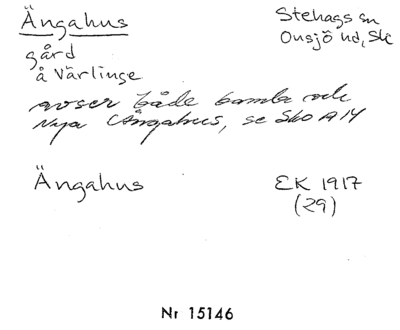 Ängahus
Stehags sn
Onsjö hd, Sk
gård
å Värlinge
avser både Gamla och
Nya Ängahus, se SkO A 14
Ängahus
EK 1917
(29)
Nr 15146